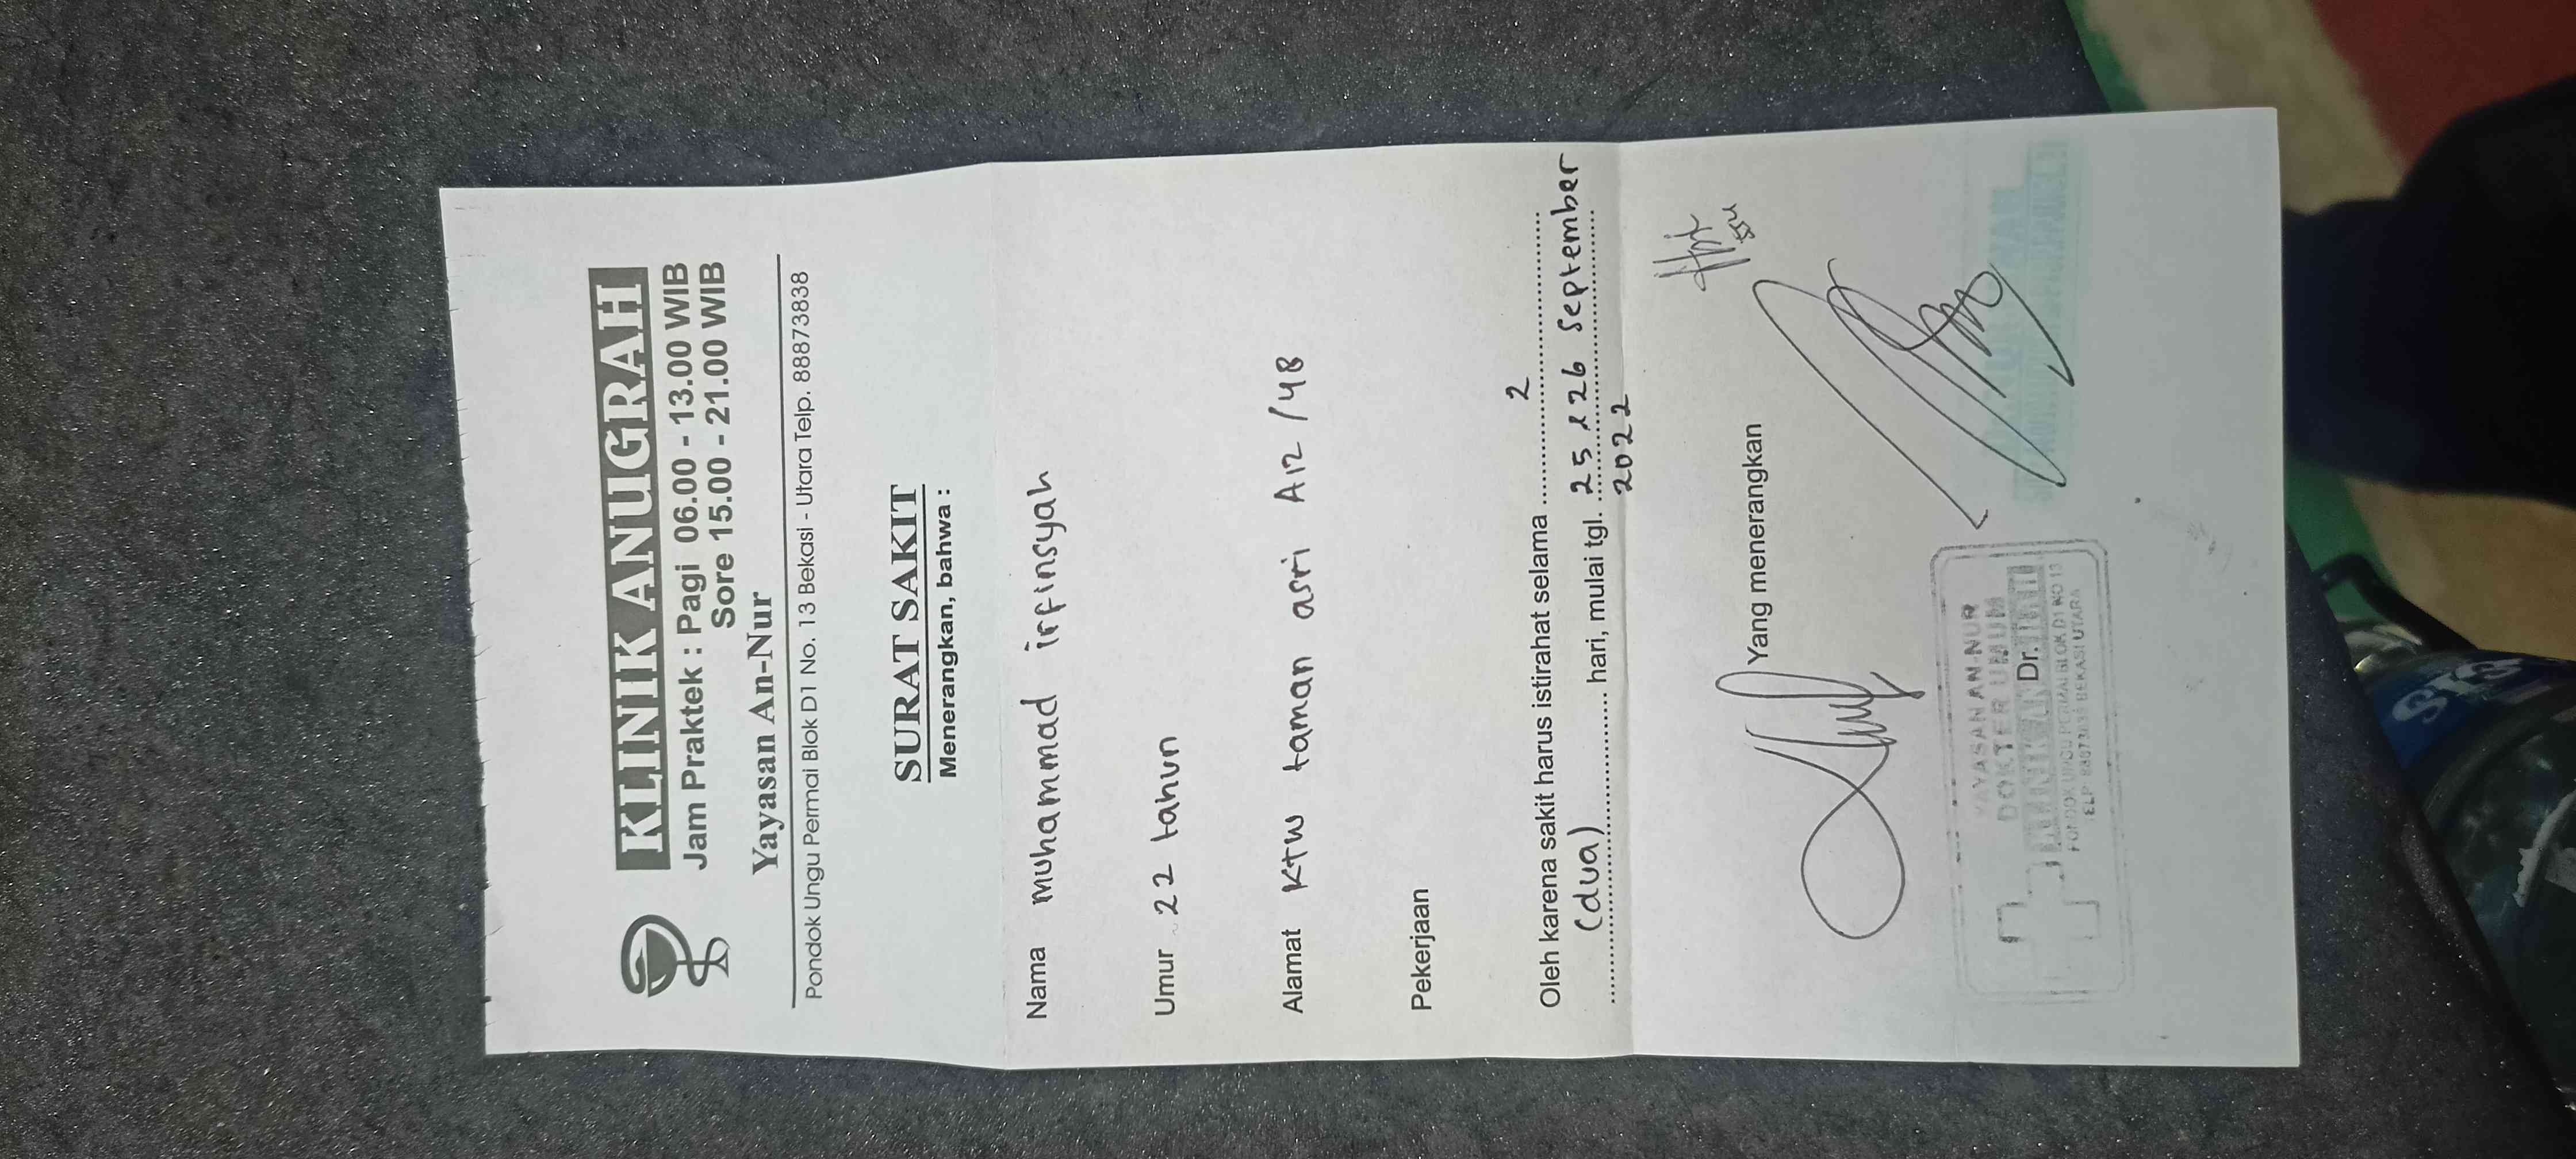 KLINIK ANUGRAH
Jam Praktek : Pagi 06.00 - 13.00 WIB
Sore 15.00 - 21.00 WIB
Yayasan An-Nur
Pondok Ungu Permai Blok D1 No. 13 Bekasi - Utara Telp. 88873838
SURAT SAKIT
Menerangkan, bahwa :
Nama muhammad irfinsyah
Umur 22 tahun
Alamat Ktw taman asri A12 / 48
Pekerjaan
Oleh karena sakit harus istirahat selama 2
(dua) hari, mulai tgl. 25 & 26 September
2022
Yang menerangkan
YAYASAN AN-NUR
DOKTER UMUM
Dr.
PONDOK UNGU PERMAI BLOK D1 NO 13
BEKASI UTARA